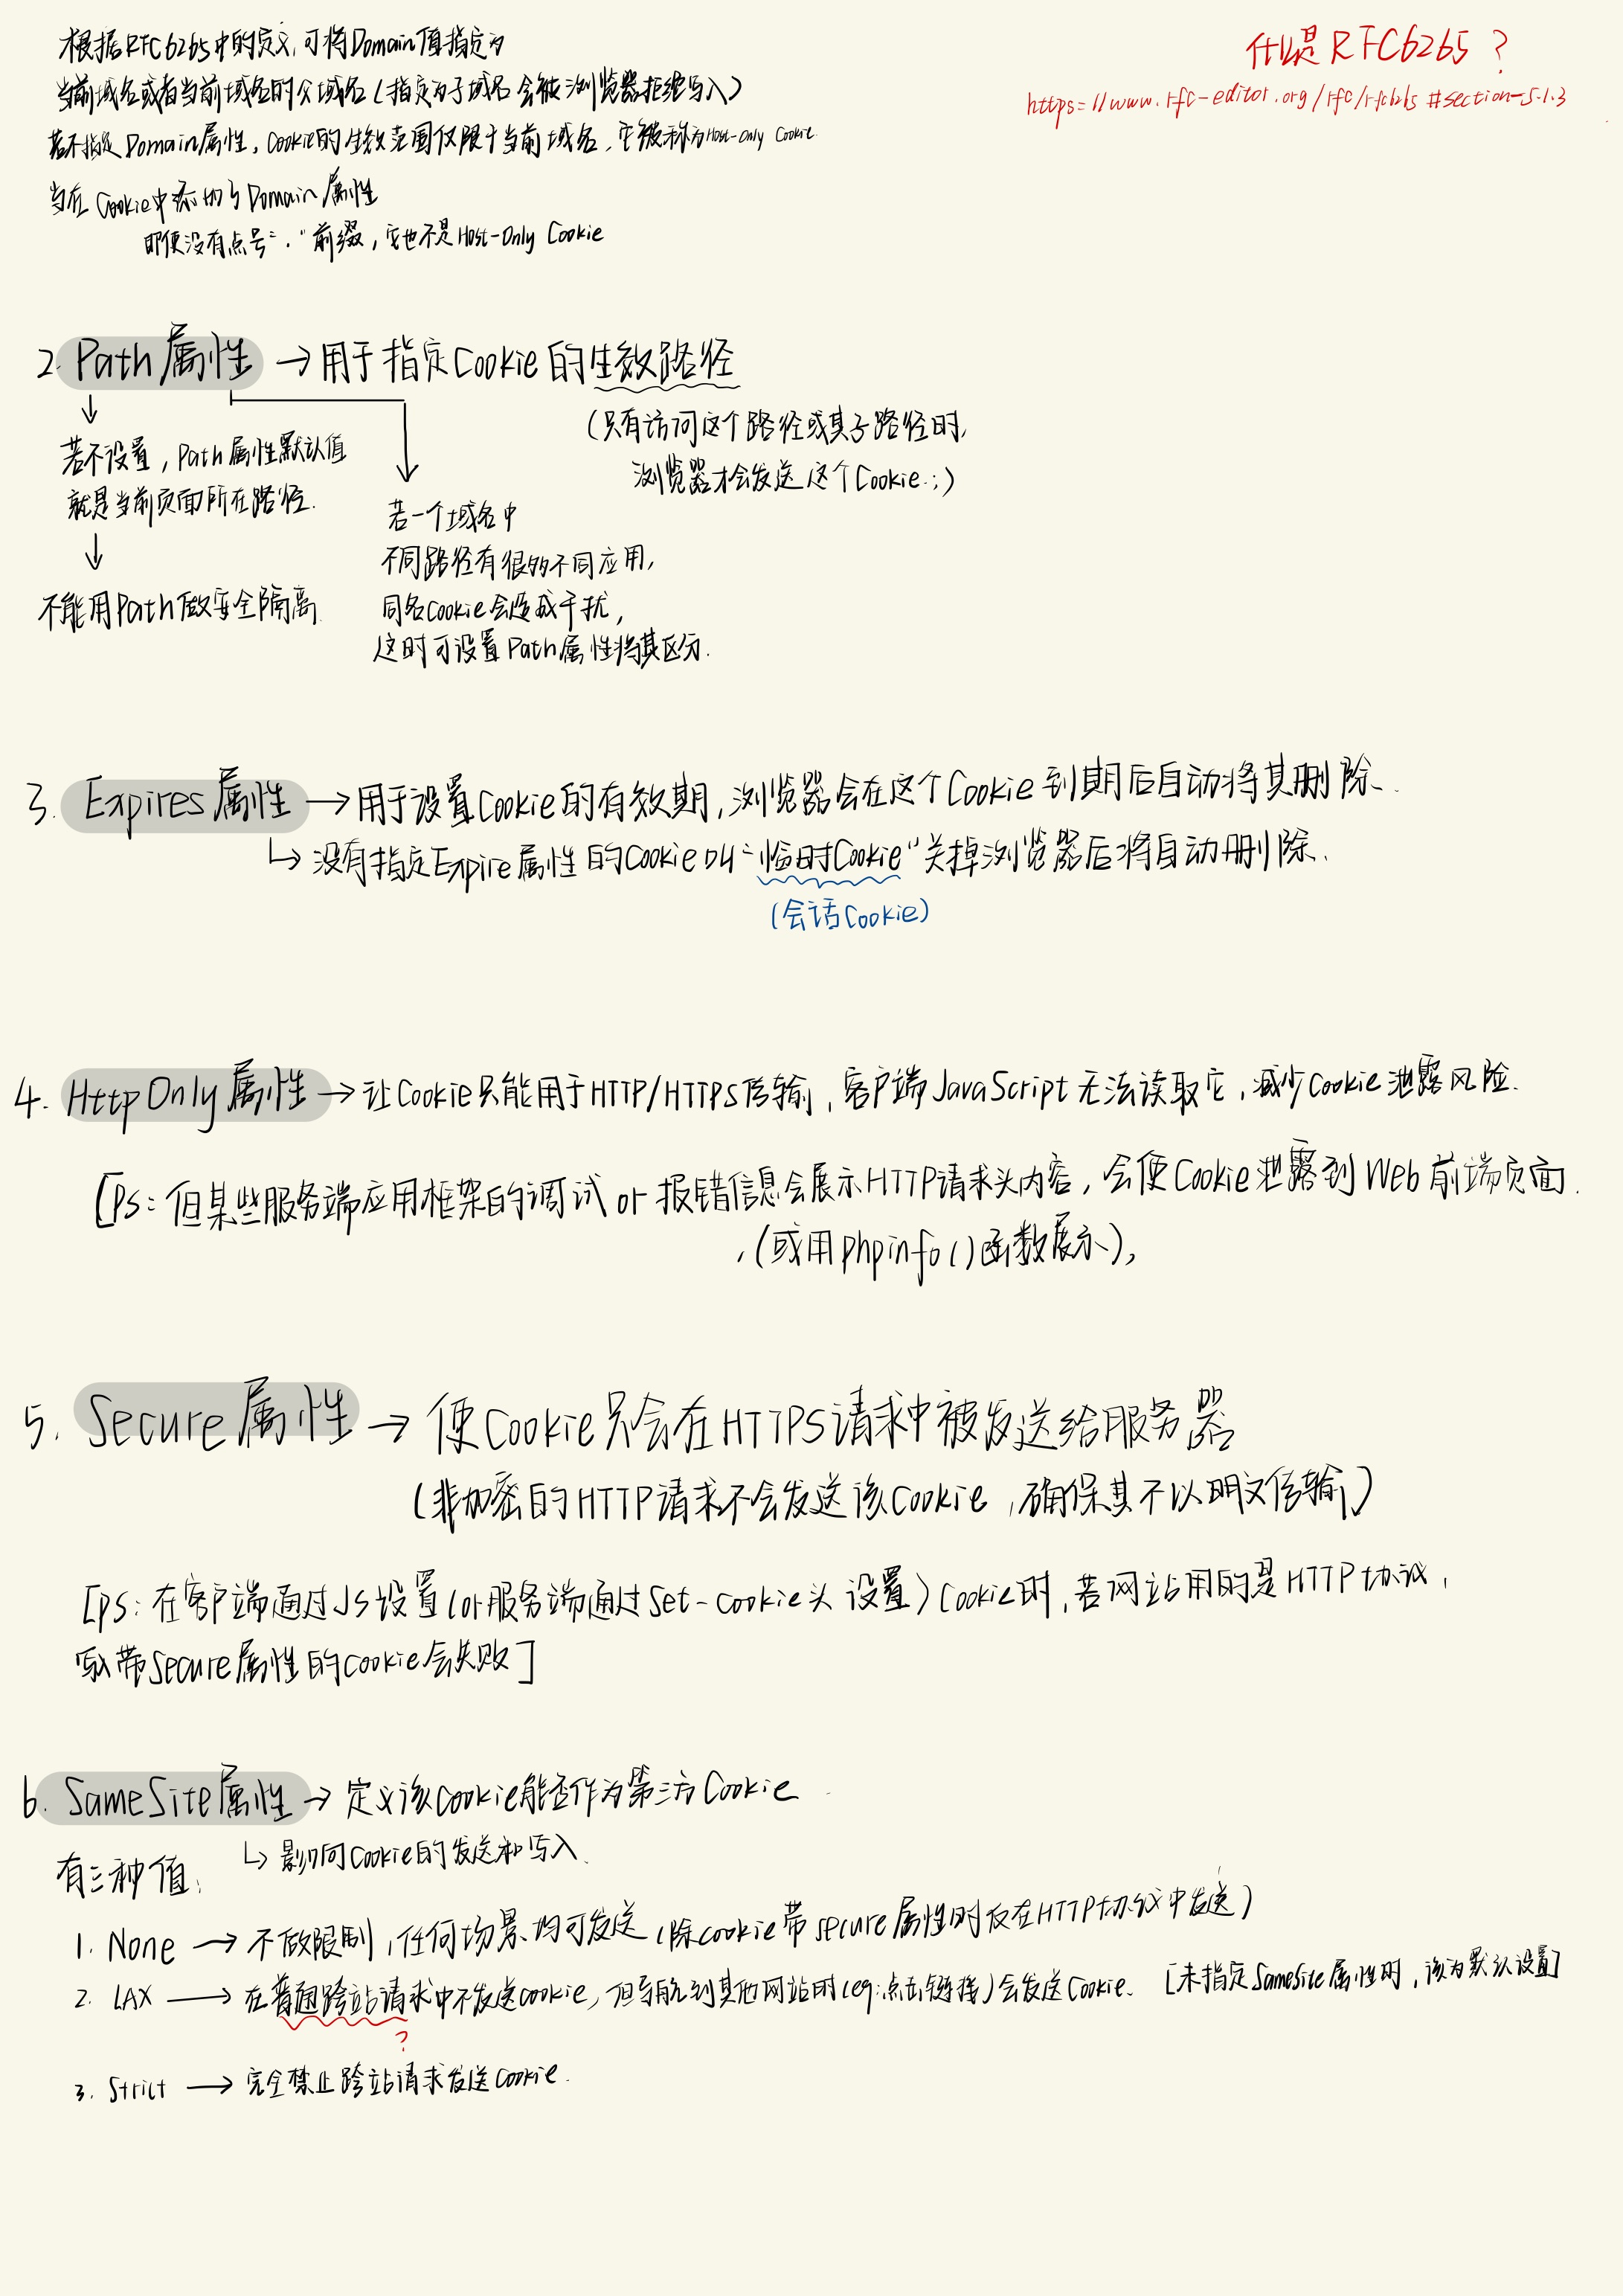 根据RFC6265中的定义,可将Domain值指定为
什么是RFC6265?
https://www.rfc-editor.org/rfc/rfc6265#section-5.1.3
当前域名或者当前域名的父域名(指定为子域名会被浏览器拒绝写入)
若不指定Domain属性,Cookie的生效范围仅限于当前域名,它被称为Host-Only Cookie.
当在Cookie中添加了Domain属性
即便没有点号"."前缀,它也不是Host-Only Cookie
2. Path属性 → 用于指定Cookie的生效路径
(只有访问这个路径或其子路径时,
浏览器才会发送这个Cookie.;)
↓
若不设置,Path属性默认值
就是当前页面所在路径.
↓
不能用Path做安全隔离.
若一个域名中
不同路径有很多不同应用,
同名Cookie会造成干扰,
这时可设置Path属性将其区分.
3. Expires属性 → 用于设置Cookie的有效期,浏览器会在这个Cookie到期后自动将其删除、
↳ 没有指定Expire属性的Cookie叫"临时Cookie"关掉浏览器后将自动删除、
(会话Cookie)
4. HttpOnly属性 → 让Cookie只能用于HTTP/HTTPS传输,客户端JavaScript无法读取它,减少Cookie泄露风险.
[PS:但某些服务端应用框架的调试or报错信息会展示HTTP请求头内容,会使Cookie泄露到Web前端页面.
,(或用phpinfo()函数展示),
5. Secure属性 → 使Cookie只会在HTTPS请求中被发送给服务器
(非加密的HTTP请求不会发送该Cookie,确保其不以明文传输)
[PS:在客户端通过JS设置(or服务端通过Set-Cookie头设置)Cookie时,若网站用的是HTTP协议,
写入带Secure属性的Cookie会失败]
6. SameSite属性 → 定义该Cookie能否作为第三方Cookie
↳ 影响Cookie的发送和写入、
有三种值:
1. None → 不做限制,任何场景均可发送(除cookie带secure属性时仅在HTTP协议中发送)
2. LAX → 在普通跨站请求中不发送cookie,但导航到其他网站时(eg:点击链接)会发送Cookie、[未指定SameSite属性时,该为默认设置]
?
3. Strict → 完全禁止跨站请求发送Cookie.